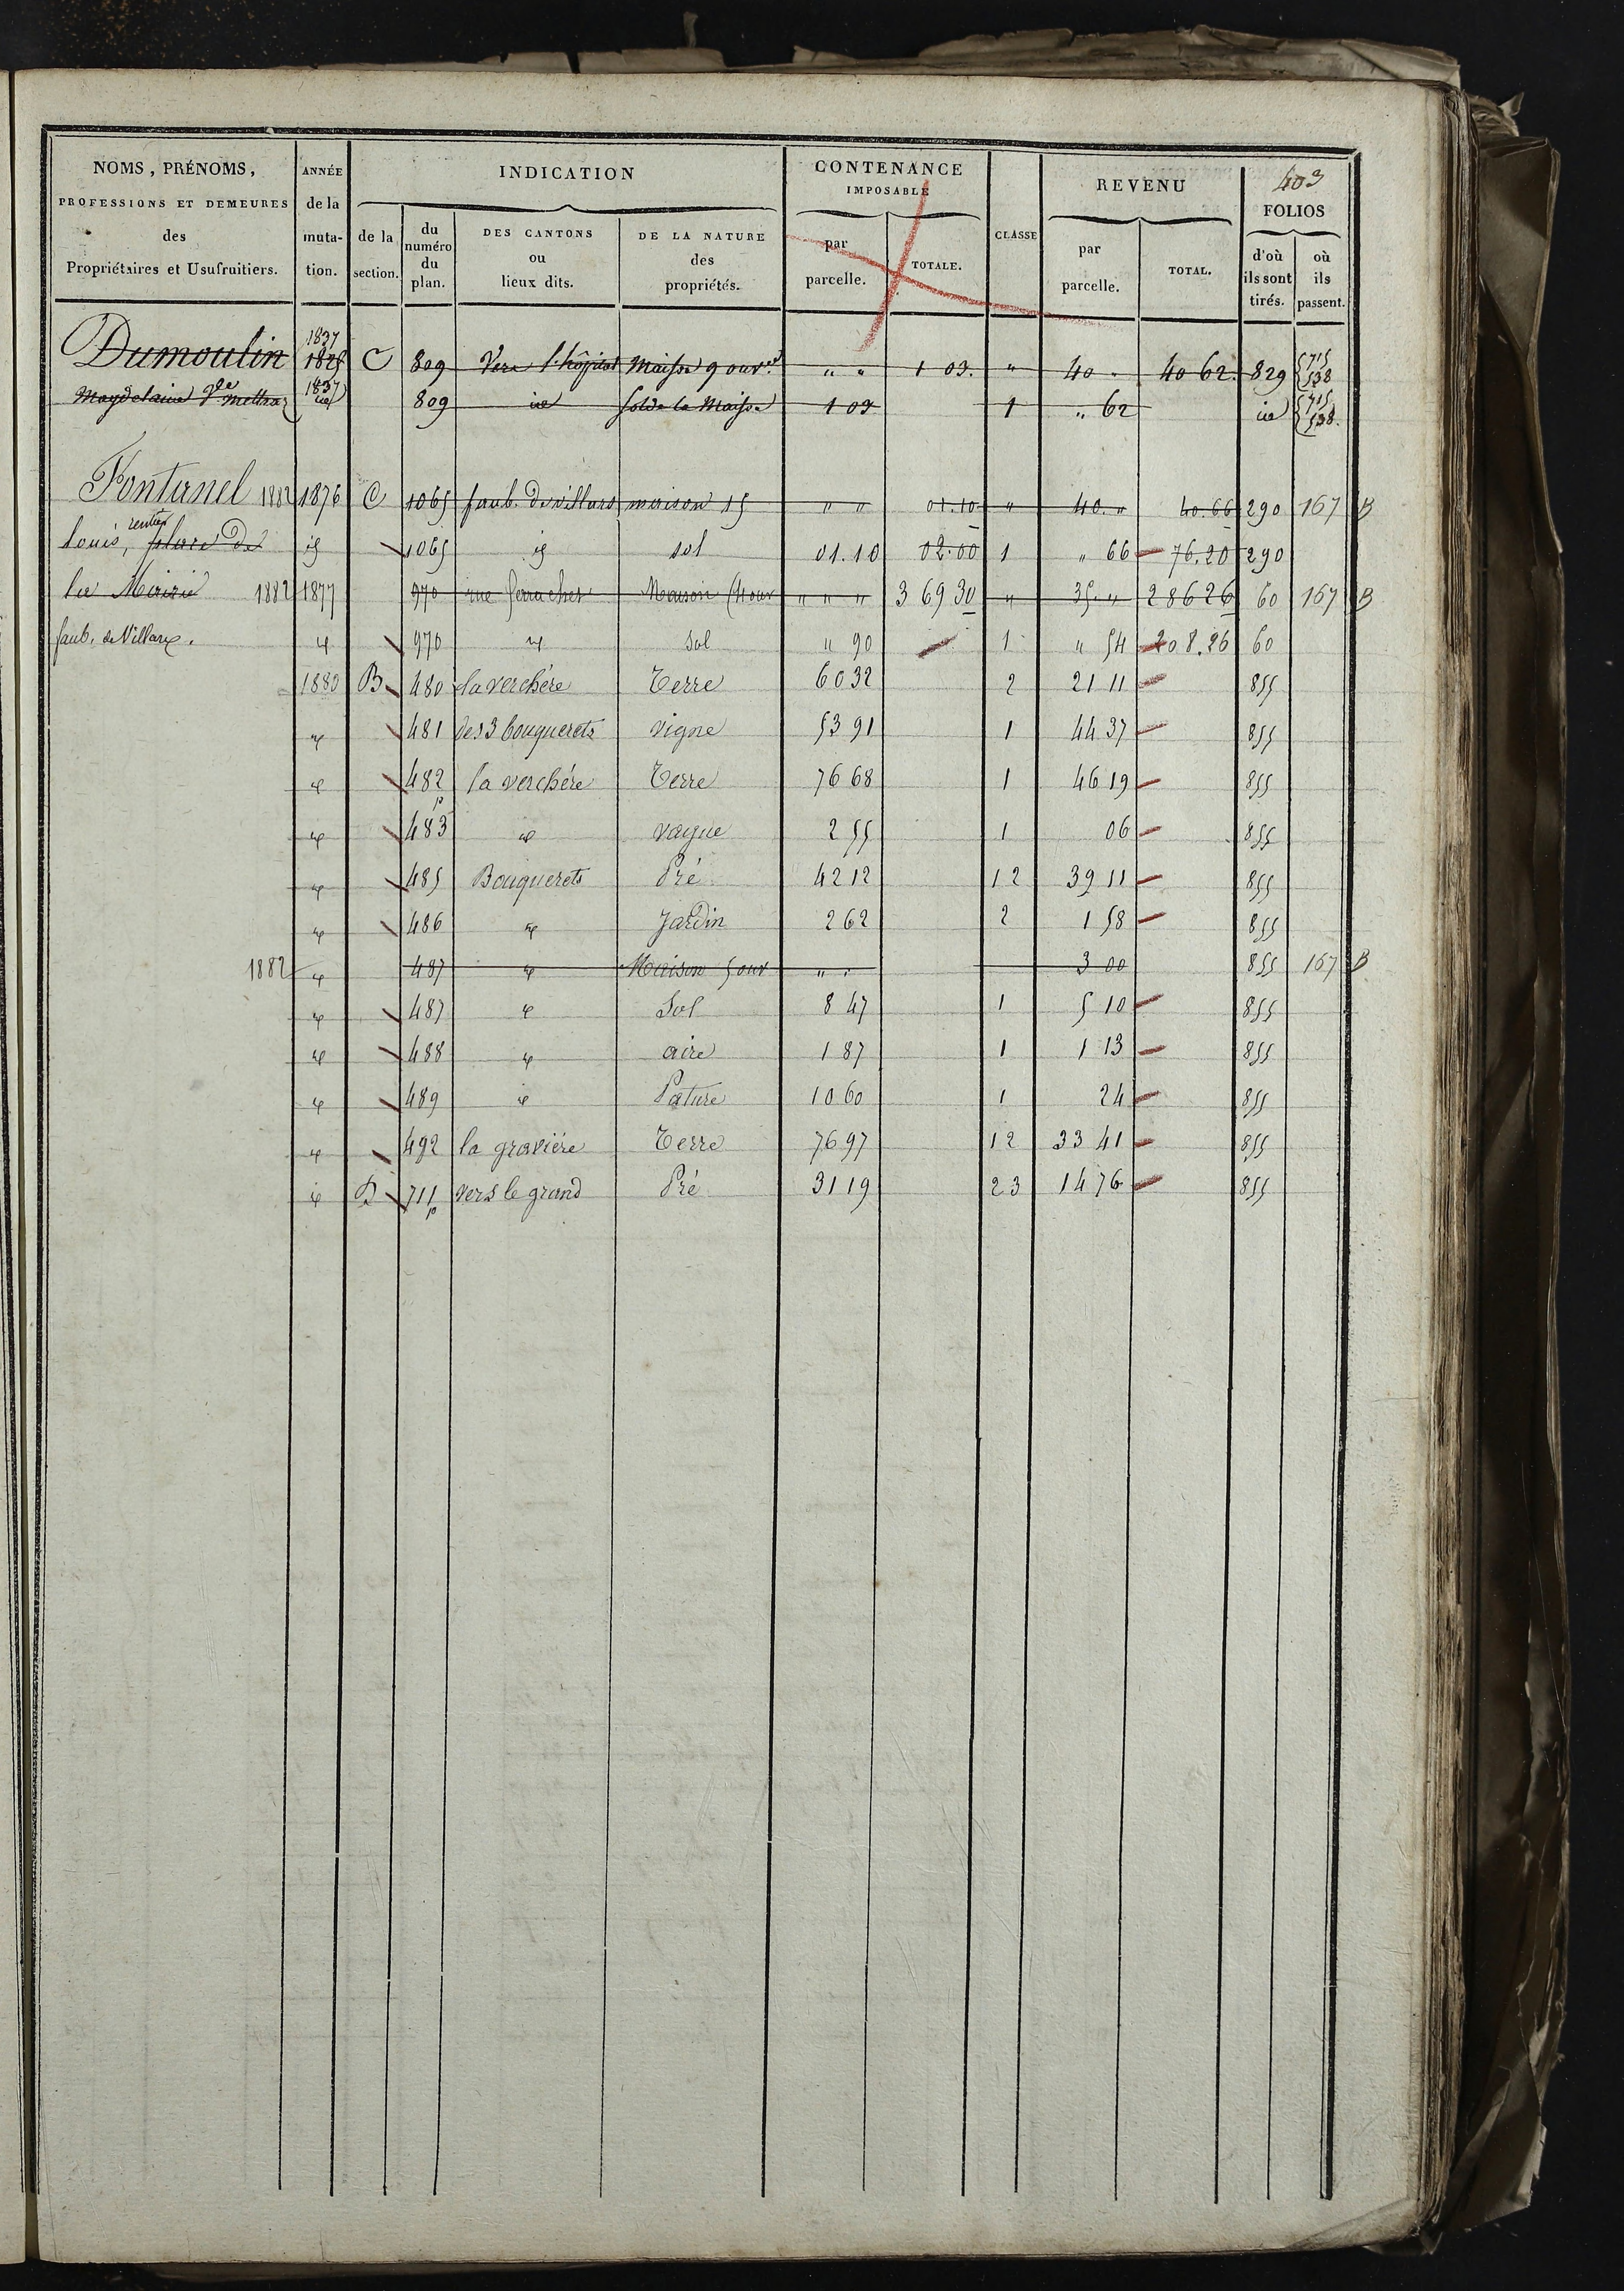 403
NOMS, PRÉNOMS, PROFESSIONS ET DEMEURES des Propriétaires et Usufruitiers.
ANNÉE de la muta- tion.
INDICATION
de la section.
du numéro du plan.
DES CANTONS ou lieux dits.
DE LA NATURE des propriétés.
CONTENANCE IMPOSABLE
par parcelle.
TOTALE.
CLASSE
REVENU
par parcelle.
TOTAL.
FOLIOS
d'où ils sont tirés.
où ils passent.
1837
Dumoulin 1825 C 809 Vers l'hôpital Maison 9 ouv. " " 1 03. " 40 " 40 62. 829 {715 538
Magdelaine Vve Mettraz 1837 id 809 id Sol de la Maison 1 03 1 " 62 id {715 538.
Fontanel 1882 1876 C 1065 faub. de villars maison 15 " " 01.10 " 40. " 40.66 290 167 B
Louis, rentier place de id 1065 id sol 01.10 02.00 1 " 66 76.20 290
la Mairie 1882 1877 970 rue Maison (4 our " " " 3 69 30 " 35. " 286 26 60 167 B
faub. de Villars. id 970 id Sol " 90 1 " 54 208.26 60
1880 B 480 la verchère Terre 60 32 2 21 11 855
id 481 des 3 bouquerets vigne 53 91 1 44 37 855
id 482 la verchère Terre 76 68 1 46 19 855
id 483 p id vague 2 55 1 06 855
id 485 Bouquerets Pré 42 12 1 2 39 11 855
id 486 id Jardin 2 62 2 1 58 855
1882 id 487 id Maison 5 our " " 3 00 855 167 B
id 487 id Sol 8 47 1 5 10 855
id 488 id aire 1 87 1 1 13 855
id 489 id Pature 10 60 1 24 855
id 492 la gravière Terre 76 97 1 2 33 41 855
id D 711 p vers le grand Pré 31 19 2 3 14 76 855